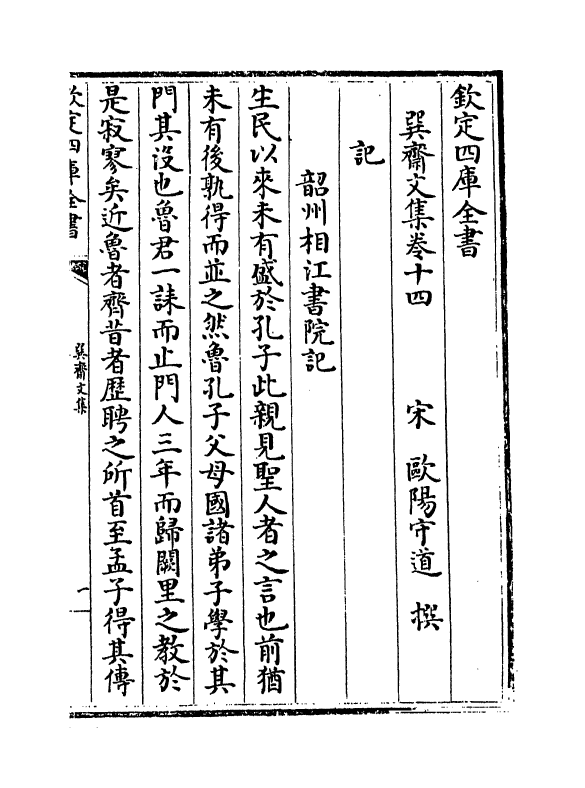 欽定四庫全書
巽齋文集卷十四 宋 歐陽守道 撰
記
韶州相江書院記
生民以來未有盛於孔子此親見聖人者之言也前猶
未有後孰得而並之然魯孔子父母國諸弟子學於其
門其沒也魯君一誄而止門人三年而歸闕里之教於
是寂寥矣近魯者齊昔者歷聘之所首至孟子得其傳
欽定四庫全書
巽齋文集
一